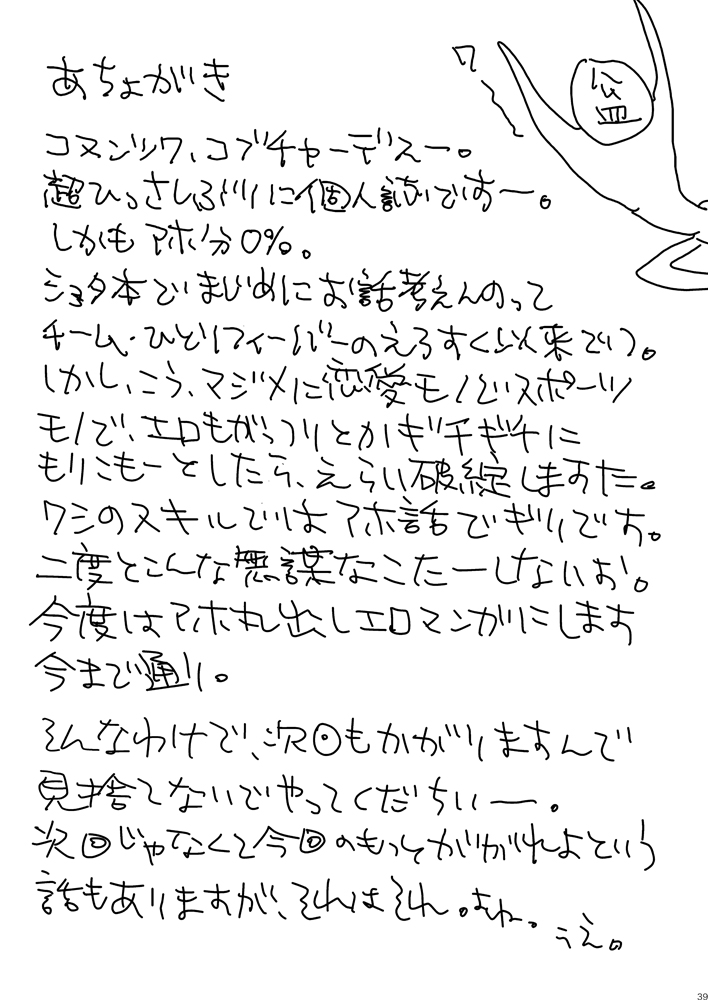 あちょがき
ワ
公
皿
コヌンツワ、コブチャーデえー。
超ひっさしぶりに個人誌ですー。
しかもアホ分0%。
ショタ本でまじめにお話考えんのって
チーム・ひとりフィーバーのえろすく以来でつ。
しかし、こう、マジメに恋愛モノでスポーツ
モノで、エロもがっつりとかギチギチに
もりこもーとしたら、えらい破綻しますた。
ワシのスキルではアホ話でギリです。
二度とこんな無謀なこたーしないお。
今度はアホ丸出しエロマンガにします
今まで通り。
そんなわけで、次回もかがりますんで
見捨てないでやってくだちいー。
次回じゃなくて今回のもっとがががれよという
話もありますが、それはそれ。よね。
こえ。
39